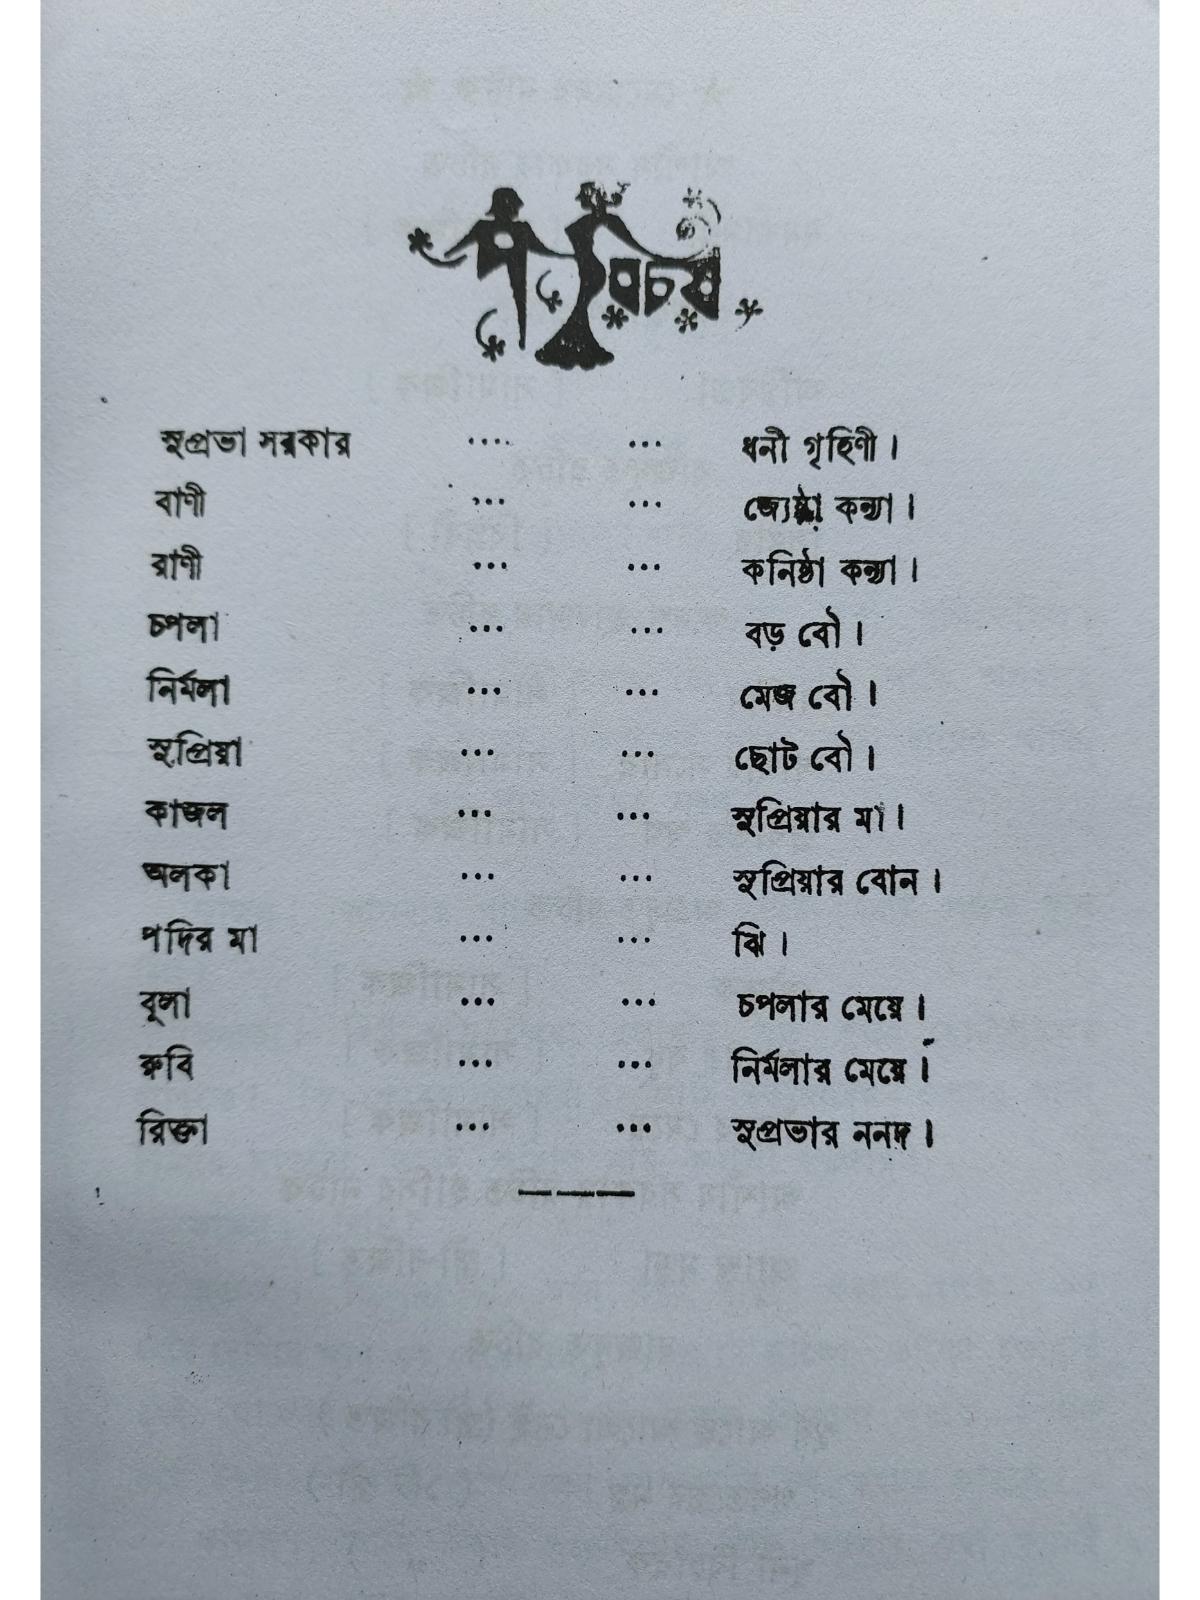 পরিচয়
সুপ্রভা সরকার .... ... ধনী গৃহিণী।
বাণী ... ... জ্যেষ্ঠা কন্যা।
রাণী ... ... কনিষ্ঠা কন্যা।
চপলা ... ... বড় বৌ।
নির্মলা ... ... মেজ বৌ।
সুপ্রিয়া ... ... ছোট বৌ।
কাজল ... ... সুপ্রিয়ার মা।
অলকা ... ... সুপ্রিয়ার বোন।
পদির মা ... ... ঝি।
বুলা ... ... চপলার মেয়ে।
রুবি ... ... নির্মলার মেয়ে।
রিক্তা ... ... সুপ্রভার ননদ।